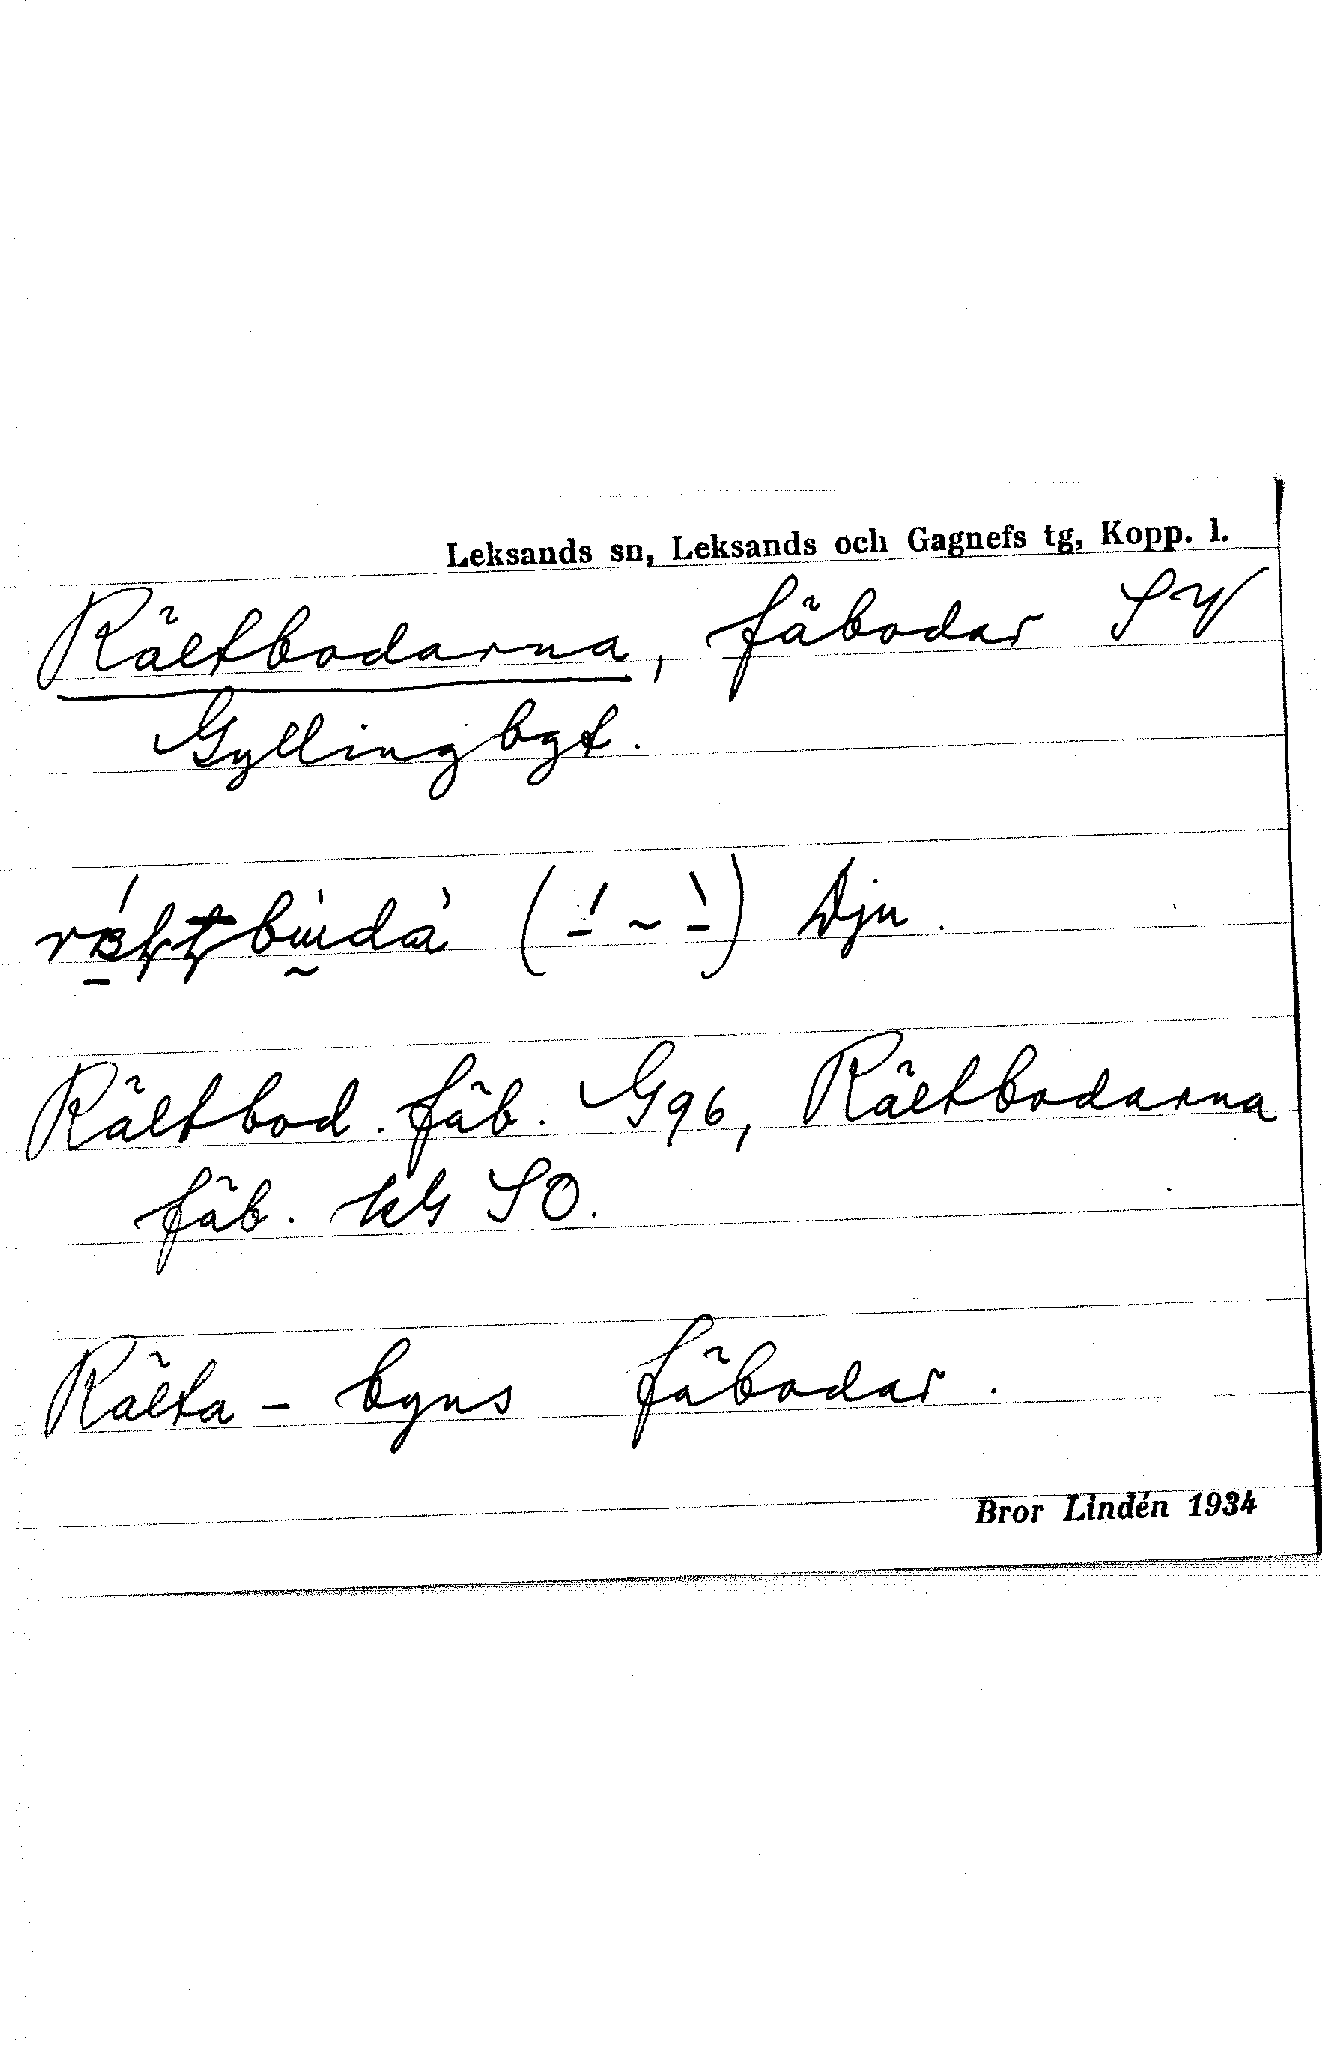 Leksands sn, Leksands och Gagnefs tg, Kopp. l.
Rältbodarna, fäbodar SV
Gyllingbgt.
Dju.
Rältbod. fäb. G96, Rältbodarna
fäb. kG SO.
Rälta - byns fäbodar.
Bror Lindén 1934